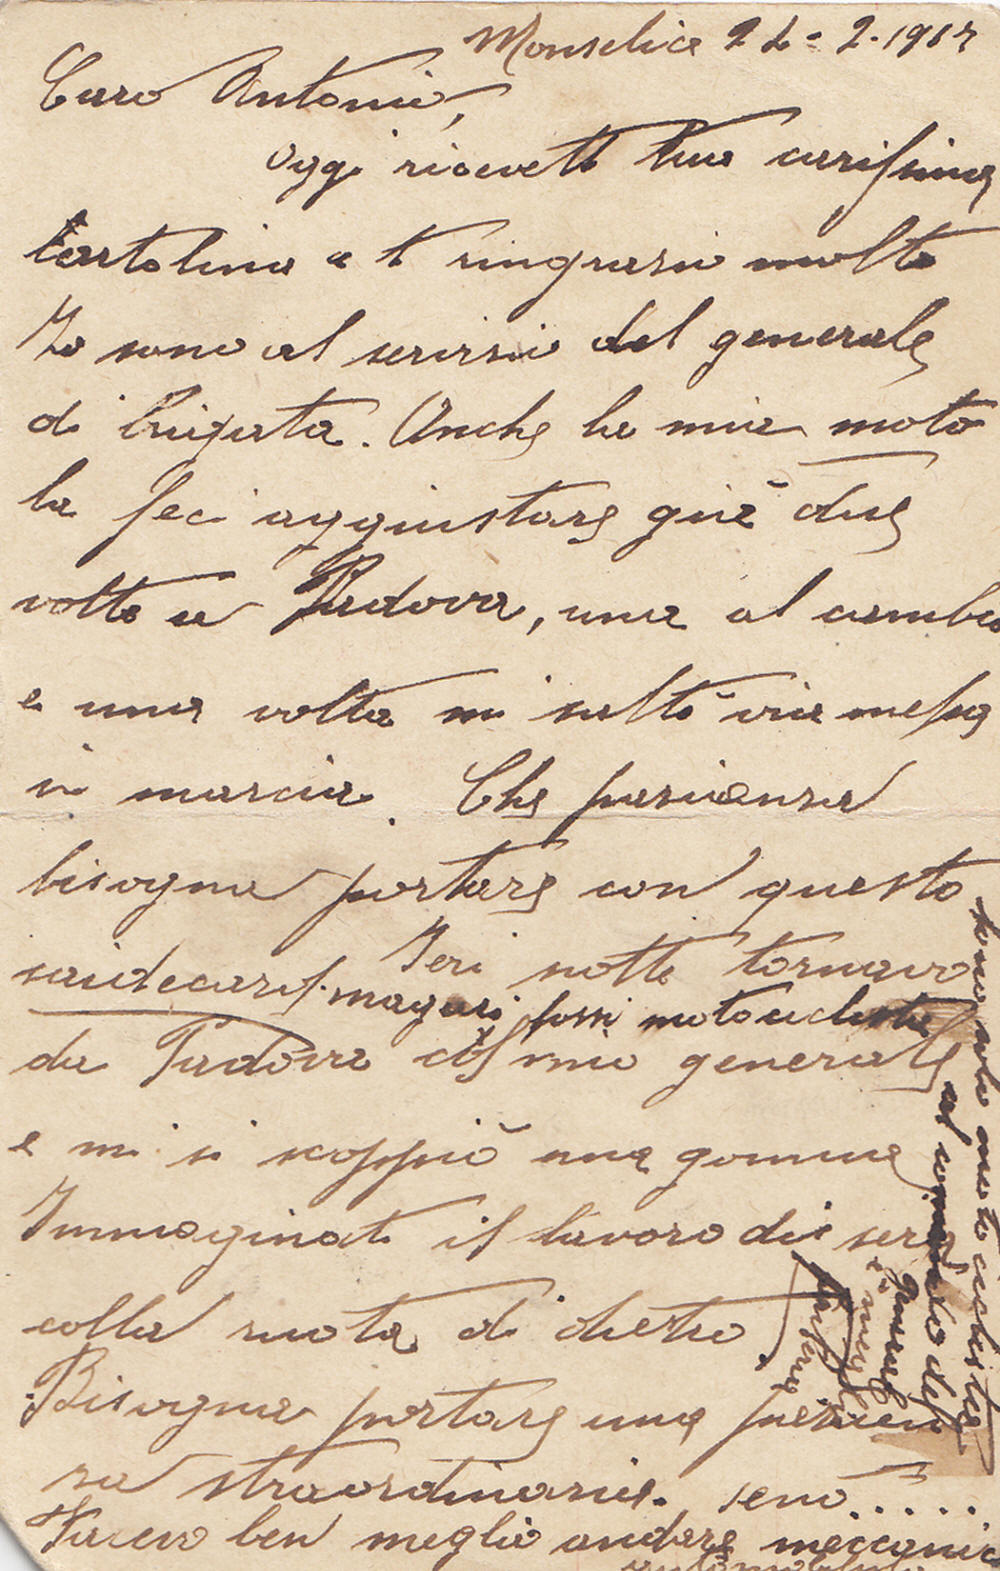 Monselice 22-2-1917
Caro Antonio,
Oggi ricevetti tua carissima
cartolina e ti ringrazio molto
Io sono al servizio del generale
di brigata. Anche la mia moto
la feci aggiustare già due
volte a Padova, una al cambio
e una volta mi saltò via messa
in marcia. Che pasienza
bisogna portare con questo
saidecarf. magari fossi motociclista
Ieri notte tornavo
da Padova col mio generale
e mi si scoppiò una gomma
Immaginati il lavoro di sera
colla ruota di dietro.
Bisogna portare una pasien
sa straordinaria. senò.....
Facevo ben meglio andare meccanico
automobilista
motociclista
al comando del
generale
è meglio